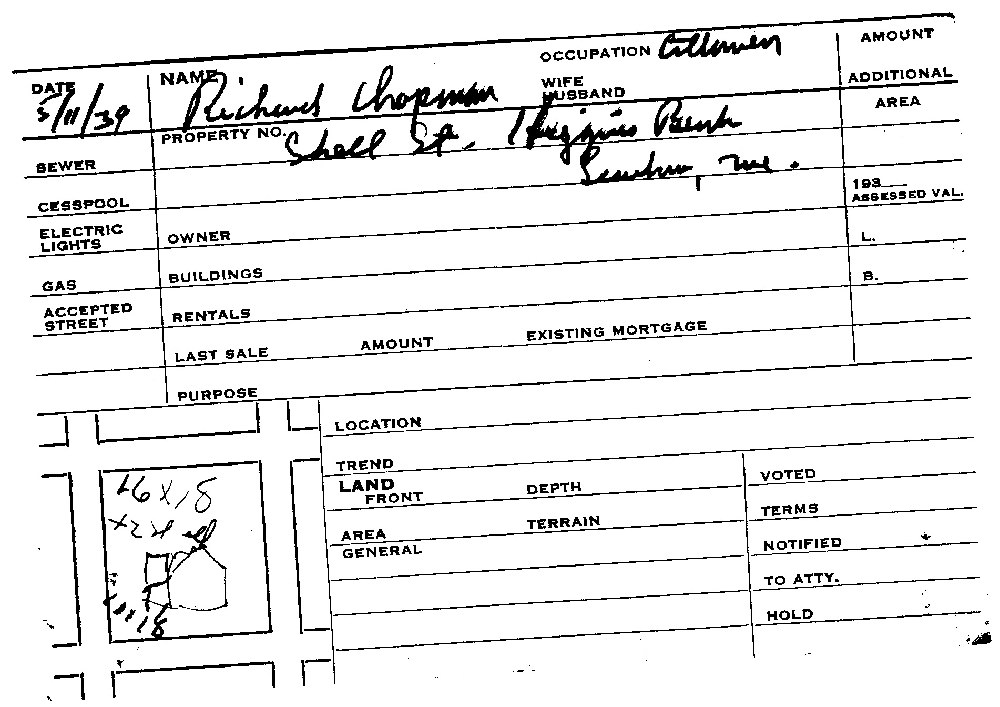 DATE 5/11/39 NAME Richard Chapman OCCUPATION AMOUNT
WIFE
HUSBAND ADDITIONAL
PROPERTY NO. Shell St. Higgins Beach AREA
SEWER
CESSPOOL 193__
ASSESSED VAL.
ELECTRIC
LIGHTS OWNER L.
GAS BUILDINGS B.
ACCEPTED
STREET RENTALS
LAST SALE AMOUNT EXISTING MORTGAGE
PURPOSE
LOCATION
TREND
LAND
FRONT DEPTH VOTED
AREA TERRAIN TERMS
GENERAL NOTIFIED
TO ATTY.
HOLD
16 x 18